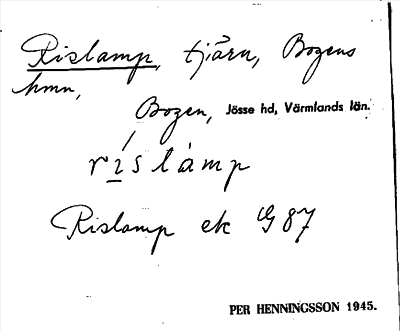 Rislamp, tjärn, Bogens
hmn,
Bogen, Jösse hd, Värmlands län.
ríslàmp
Rislamp ek G 87
PER HENNINGSSON 1945.